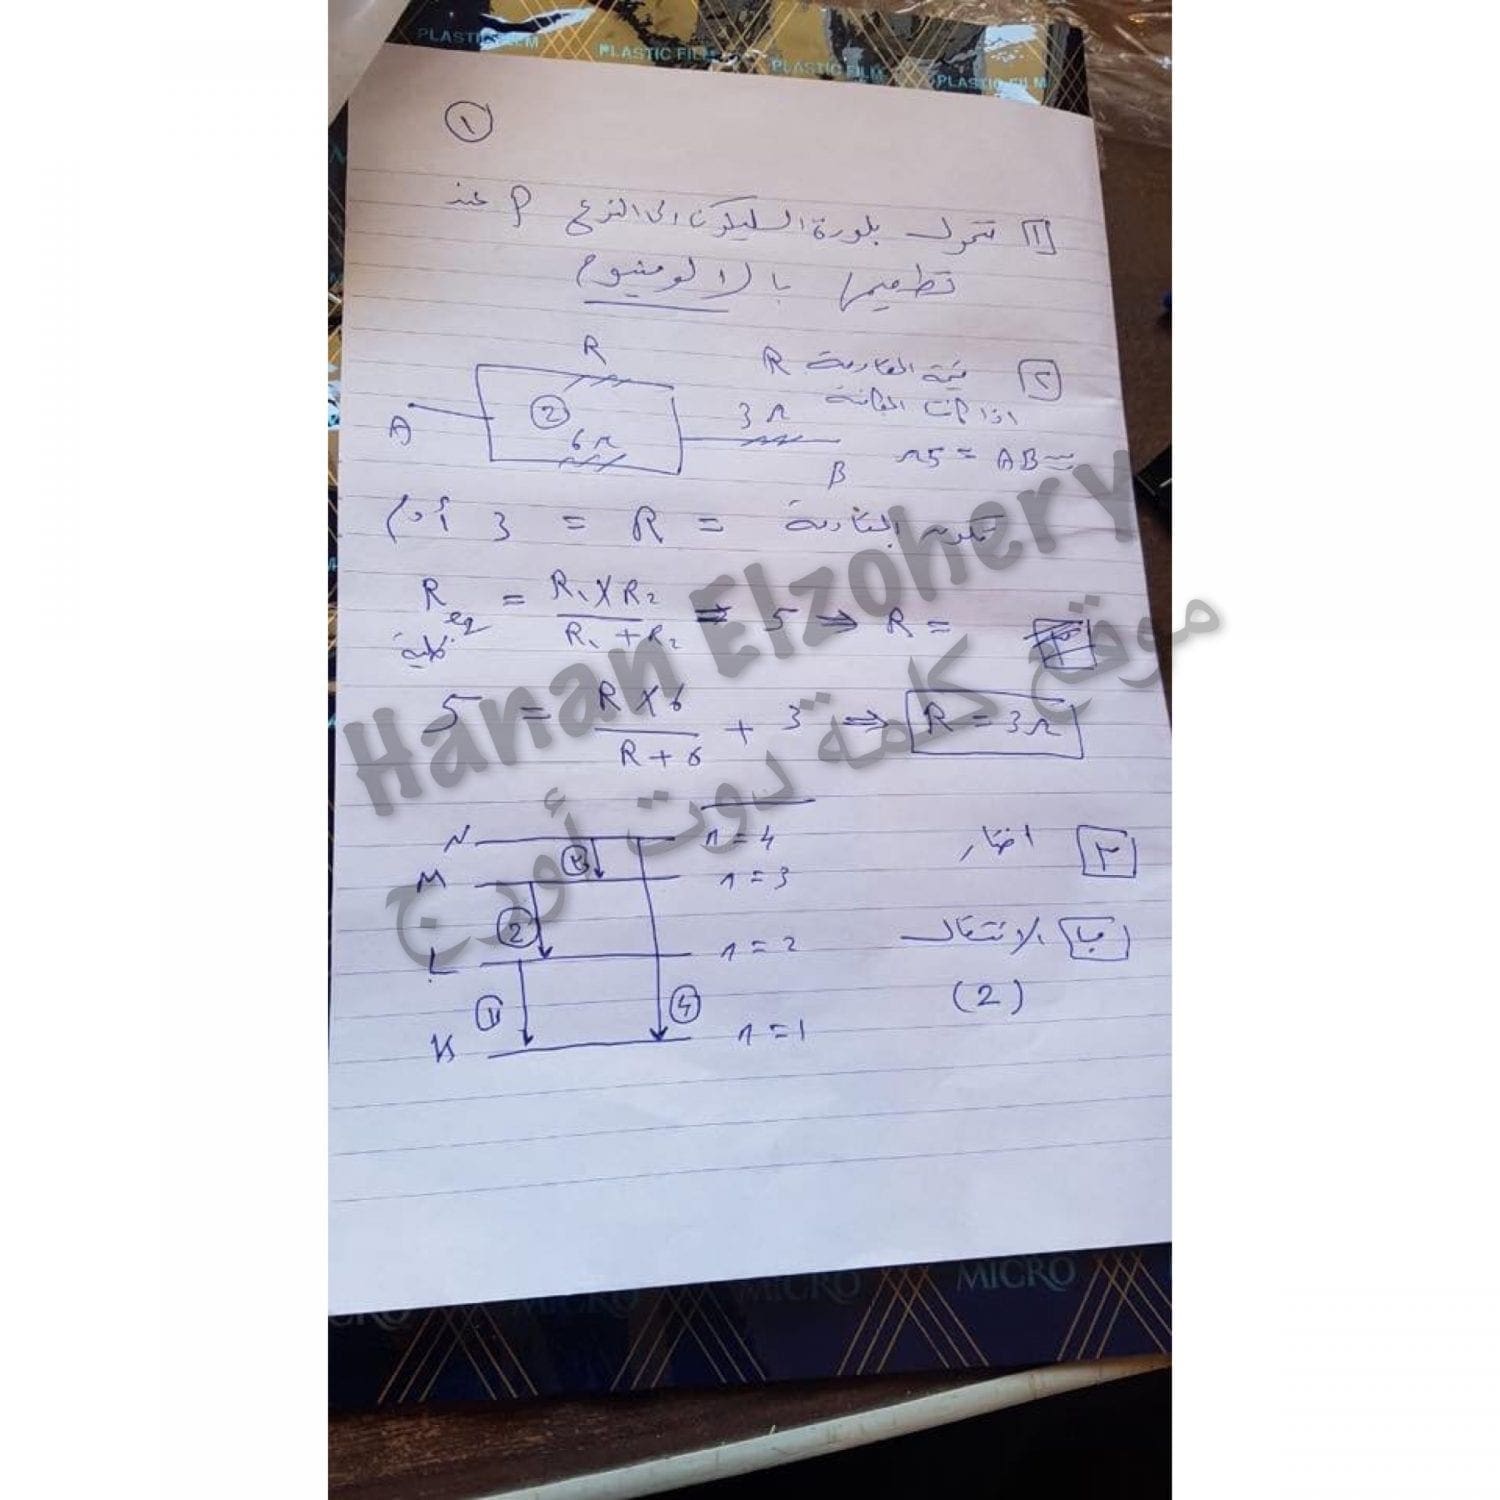 PLASTIC FILM PLASTIC FILM PLASTIC FILM PLASTIC FILM
١
١ تتحول بلورة السليكون الى النوع P عند
تطعيمها بالالومنيوم
٢ قيمة المقاومة R
اذا كانت المكافئة
بين AB = 5Ω
R
A ② 6Ω 3Ω B
تكون المقاومة = R = 3 أوم
Req = R₁ X R₂ / R₁ + R₂ ⇒ 5 ⇒ R =
كلية
5 = R X 6 / R + 6 + 3 ⇒ R = 3Ω
٣ اختار
ب الانتقال
(2)
N n = 4
③
M n = 3
②
L n = 2
① ④
K n = 1
Hanan Elzohery
موقع كلمة دوت أورج
MICRO MICRO MICRO MICRO